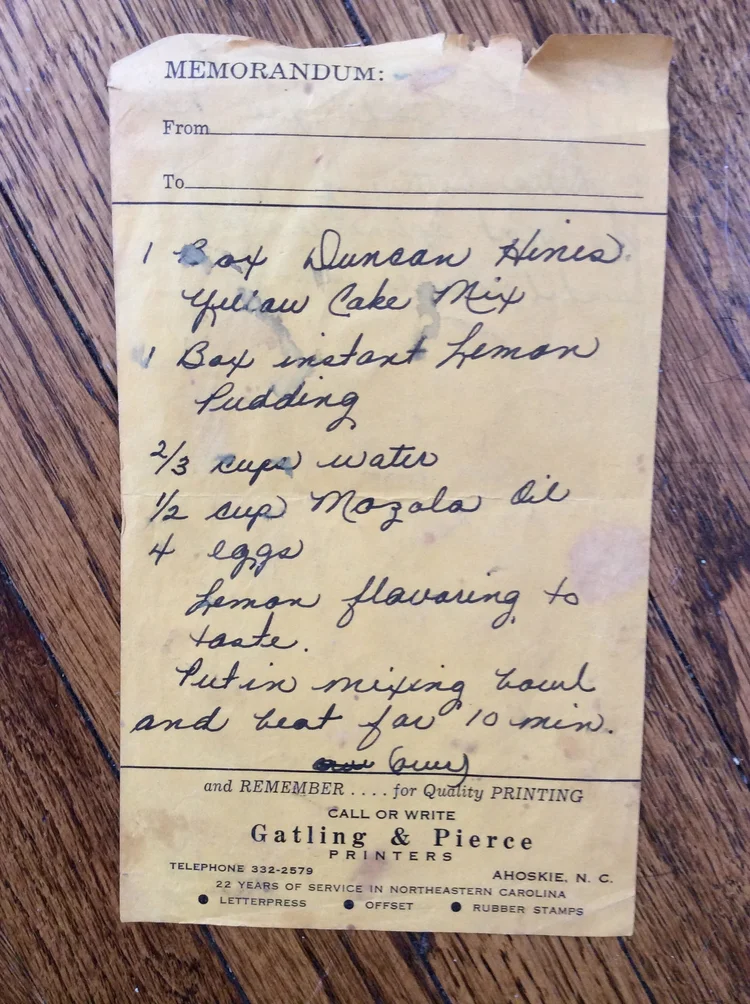 MEMORANDUM:
From
To
1 Box Duncan Hines
Yellow Cake Mix
1 Box instant Lemon
Pudding
2/3 cups water
1/2 cup Mazola Oil
4 eggs
Lemon flavoring to
taste.
Put in mixing bowl
and beat for 10 min.
(over)
and REMEMBER .... for Quality PRINTING
CALL OR WRITE
Gatling & Pierce
PRINTERS
TELEPHONE 332-2579 AHOSKIE, N. C.
22 YEARS OF SERVICE IN NORTHEASTERN CAROLINA
● LETTERPRESS ● OFFSET ● RUBBER STAMPS